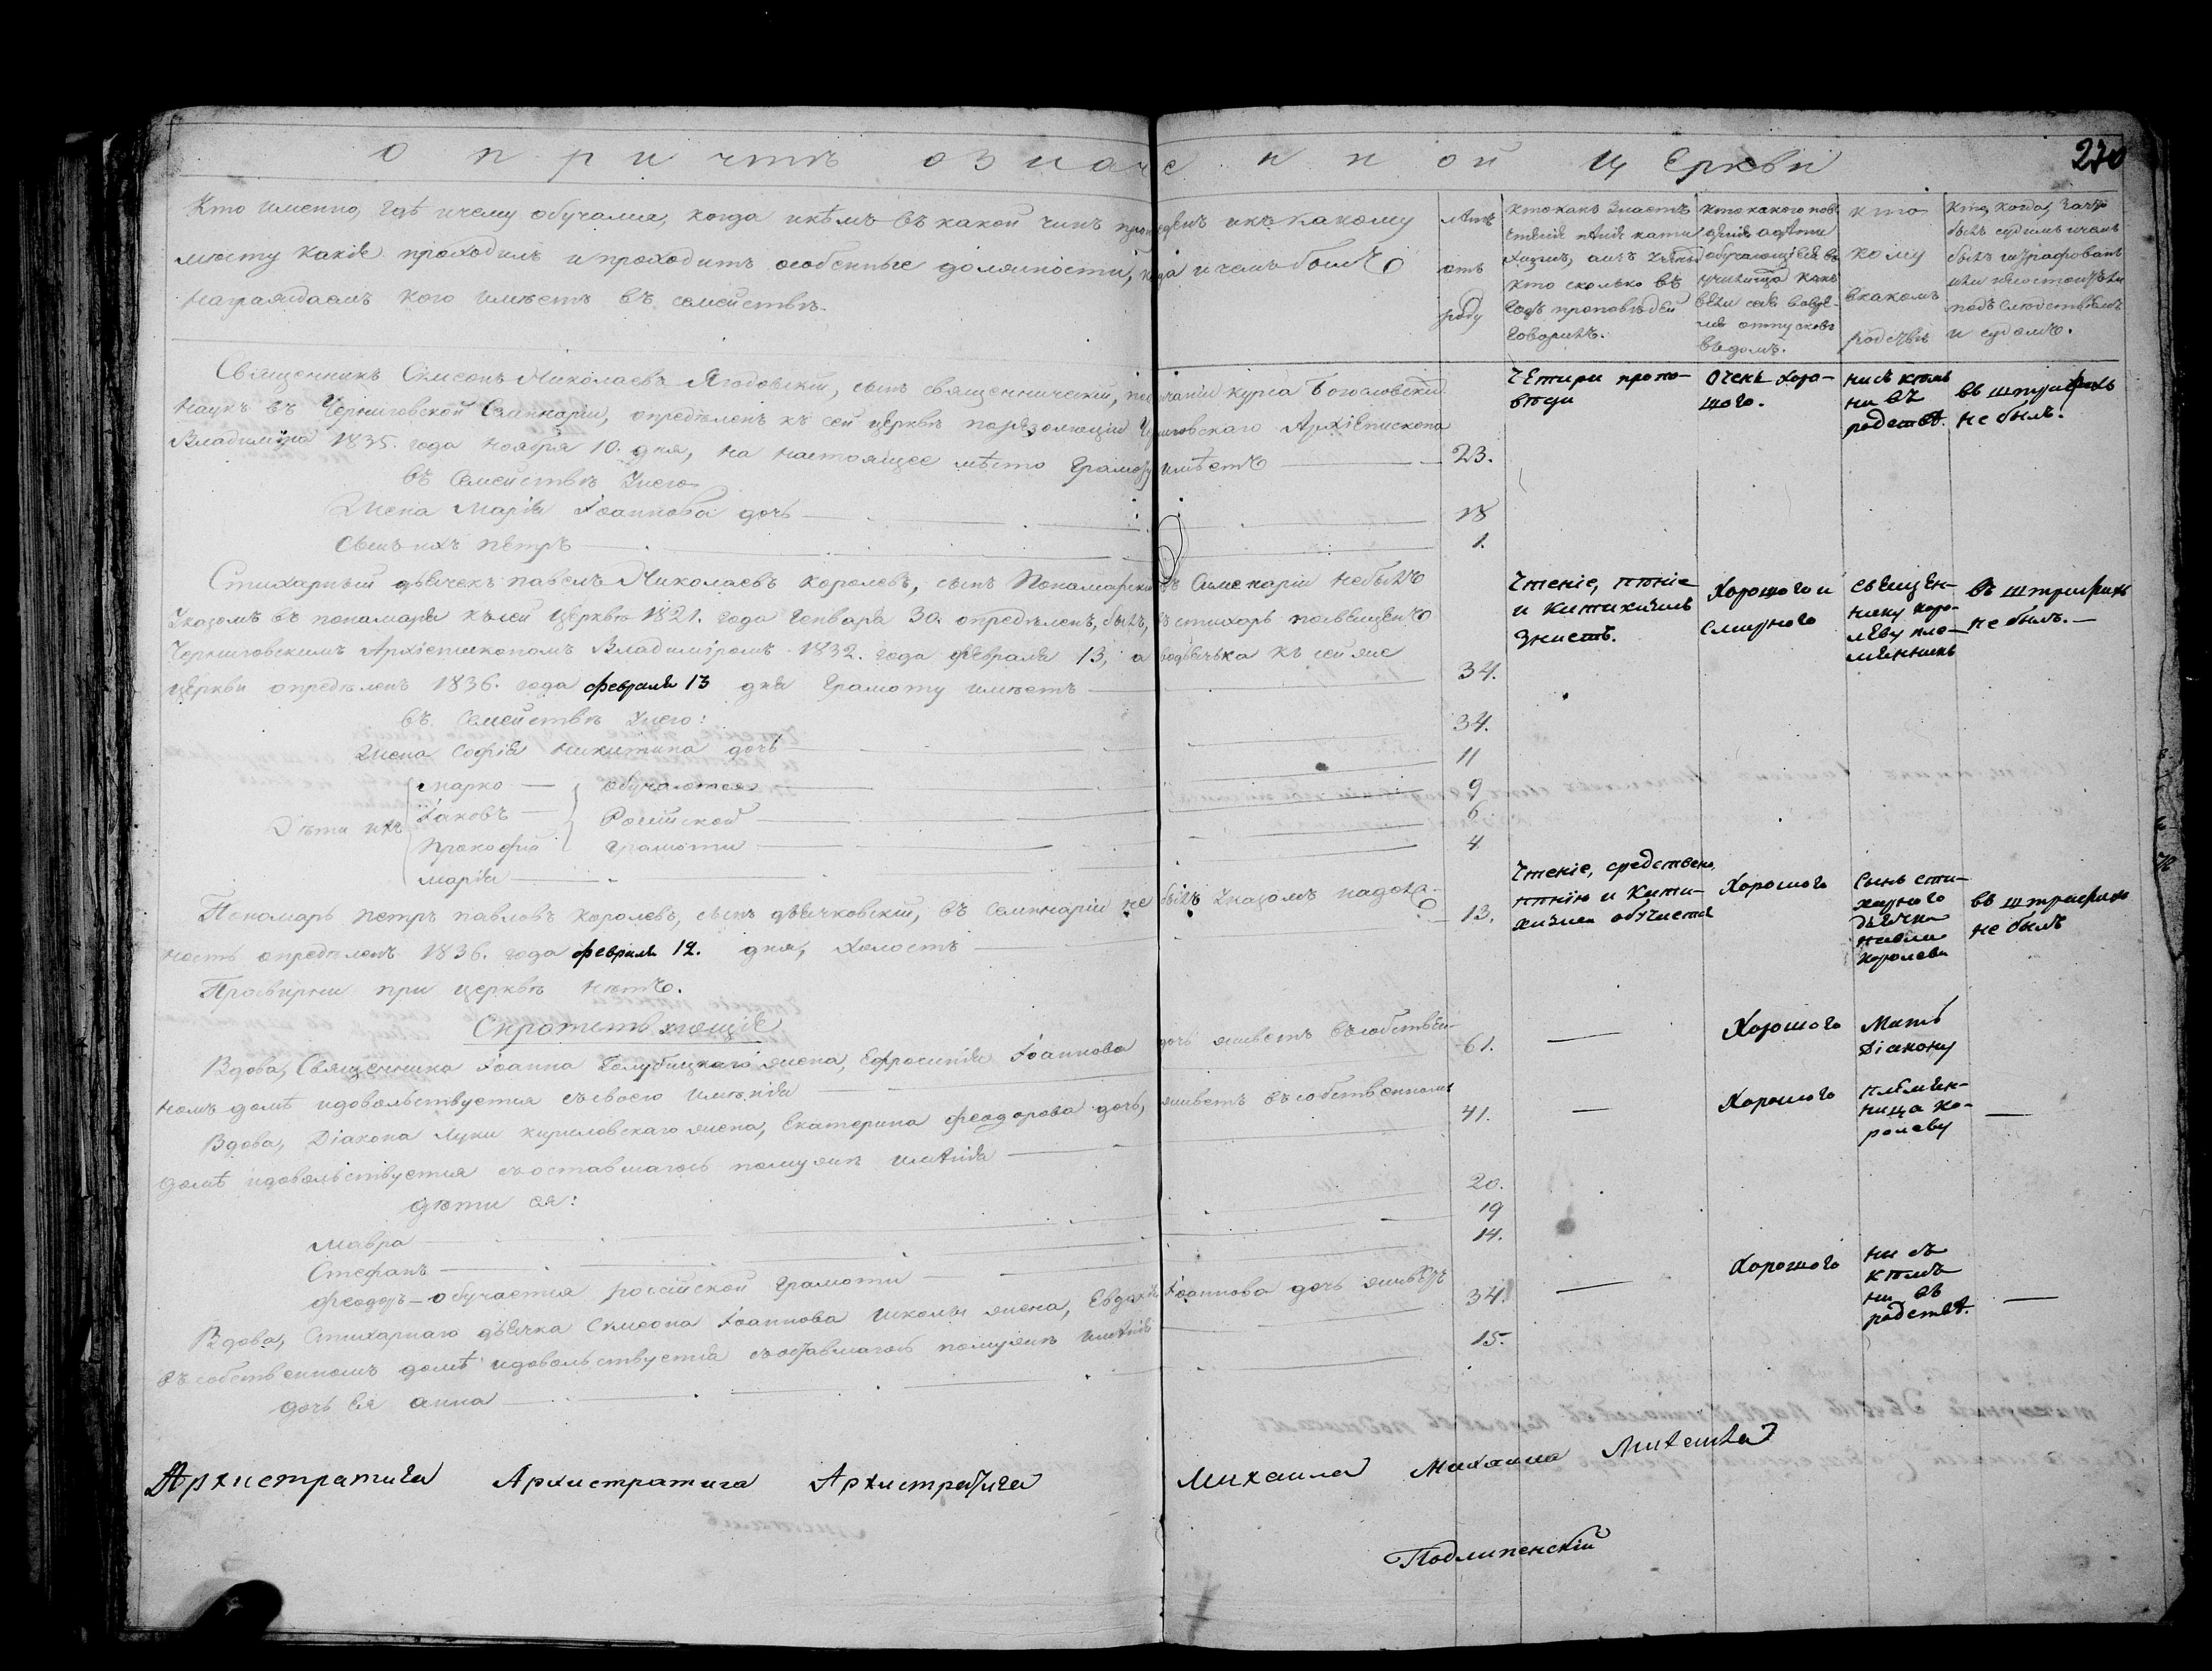 о причтѣ означенной Церкви
270
Кто именно, гдѣ и чему обучался, когда и кѣмъ въ какой чинъ произведенъ и къ какому
мѣсту какія проходилъ и проходитъ особенныя должности, когда и чемъ былъ
награждаемъ кого имѣетъ въ семействѣ.
лѣтъ
отъ
роду
кто какъ знаетъ
чтеніе пѣніе кати
хизисъ, а изъ
кто сколько въ
годъ проповѣдей
говорилъ.
кто какого пове
денія а дѣти
обучающіеся въ
училища какъ
вели себя во вре-
мя отпусковъ
въ домъ.
кто
кому
в какомъ
родствѣ
Кто, когда, за что
былъ судимъ и чемъ
былъ штрафованъ
или не состоитъ ли
подъ слѣдствіемъ
и судомъ.
Священникъ Симеонъ Николаевъ Ягодовскій, сынъ священническій, по окончаніи курса Богословскихъ
наукъ въ Черниговской Семинаріи, опредѣленъ къ сей церквѣ по резолюціи Черниговскаго Архіепископа
Владиміра 1835. года ноября 10. дня, на настоящее мѣсто Грамоту имѣетъ 23.
Четири пропо-
вѣди
очень хоро-
шого.
ни съ кѣмъ
ни въ
родствѣ.
въ штрафахъ
не былъ.
въ Семействѣ Унего
Жена Марія Іоаннова дочь 18
Сынъ ихъ Петръ 1.
Стихарный дьячекъ Павелъ Николаевъ Королевъ, сынъ Понамарскій въ Семенаріи небылъ
Указомъ въ понамаря къ сей церквѣ 1821. года Генваря 30. опредѣленъ, былъ, въ стихарь посвященъ
Черниговскимъ Архіепископомъ Владиміромъ 1832. года февраля 13, а во дьячька къ сей же
церкви опредѣленъ 1836. года февраля 13 дня Грамоту имѣетъ 34.
Чтеніе, пѣніе
и катихизись
знаетъ.
Хорошого и
смирного
священ-
нику Коро-
леву пле-
мянникъ
въ штрафахъ
не былъ.
въ Семействѣ Унего:
Жена Софія Никитина дочь 34.
Дѣти ихъ
Марко обучаются 11
Іаковъ Россійской 9
Прокофій грамоти 6
Марія 4
Пономарь Петръ Павловъ Королевъ, сынъ дьячковскій, въ Семинаріи не былъ Указомъ на долж-
ность опредѣленъ 1836. года февраля 12. дня, холостъ 13.
Чтеніе, средствено
пѣнію и Кати-
хизися обучается
Хорошого
Сынъ сти-
харного
дьячка
Павла
Королева
въ штрафахъ
не былъ
Просвирни при церквѣ нѣтъ.
Сиротствующіе
Вдова, Священника Іоанна Голубицкаго жена, Ефросинія Іоаннова дочь живетъ въ собствен-
номъ домѣ и довольствуется съ своего имѣнія 61.
Хорошого
Мать
Діакону
Вдова, Діакона Луки Кириловскаго жена, Екатерина Феодорова дочь, живетъ въ собственномъ
домѣ и довольствуется съ оставшагось помужѣ имѣнія 41.
Хорошого
племян-
ница Ко-
ролеву
дѣти ея:
Мавра 20.
Стефанъ 19
Феодоръ – обучается россійской грамоти 14.
Вдова, Стихарнаго дьячка Симеона Іоаннова Школы жена, Евдокія Іоаннова дочь живетъ
въ собственномъ домѣ и довольствуется съ оставшагось помужѣ имѣнія 34.
Хорошого
ни съ
кѣмъ
ни въ
родствѣ.
дочь Ея Анна 15.
Архистратига Архистратига Архистратига Михаила Михаила
Подлипенскій